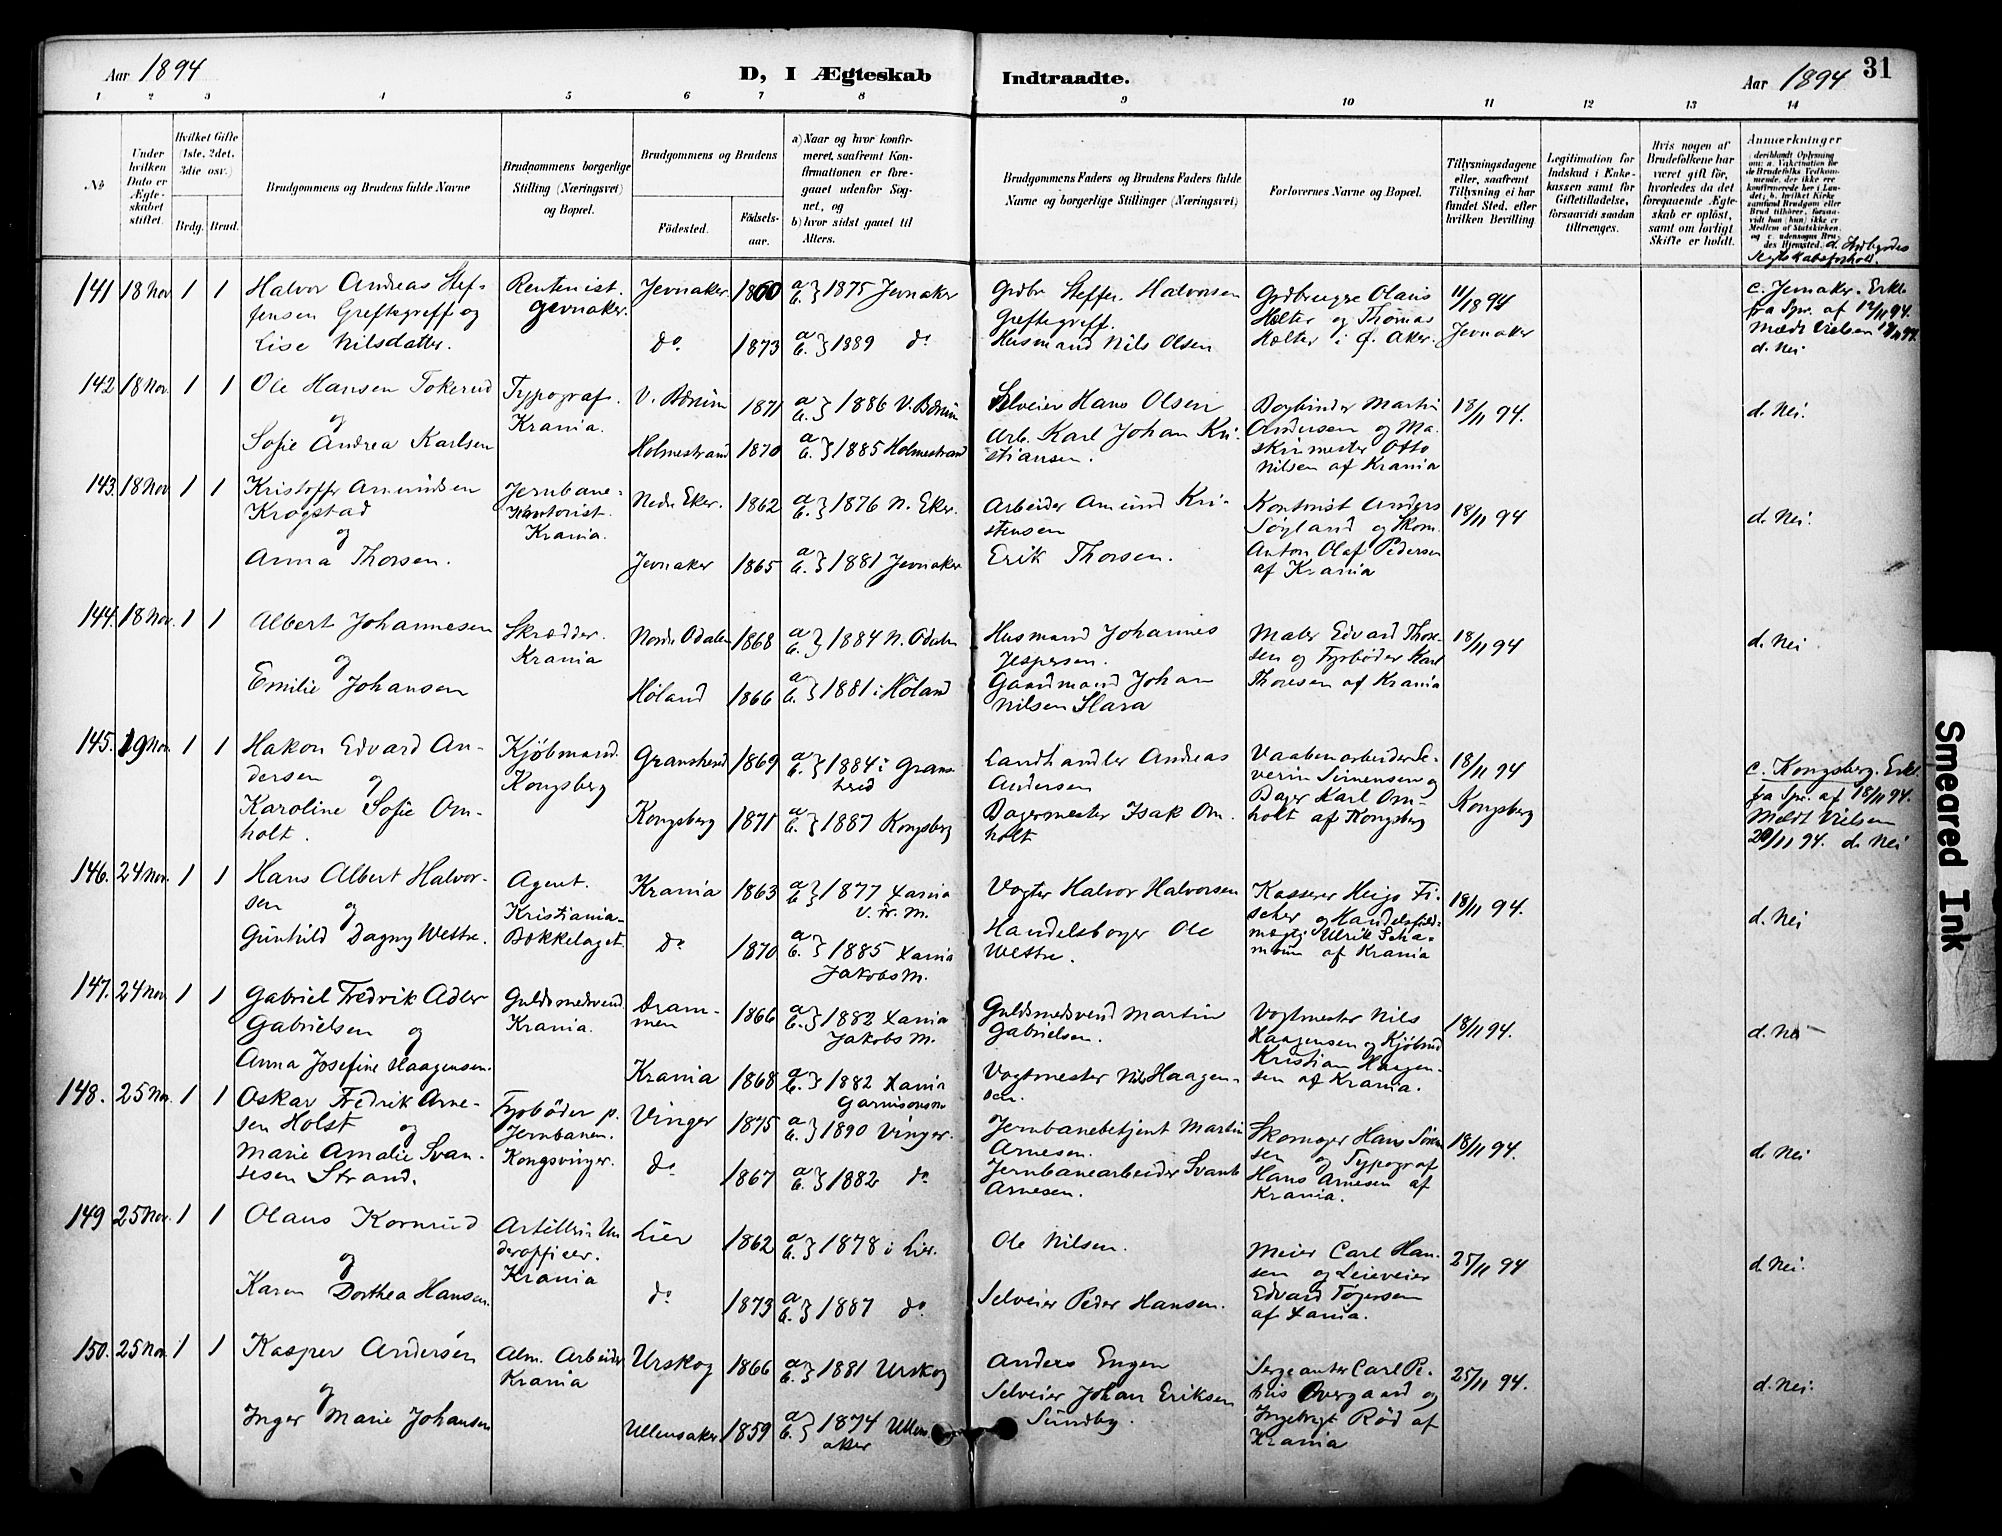 Aar 1894
D, I Ægteskab Indtraadte.
Aar 1894
31
1 2 3 4 5 6 7 8 9 10 11 12 13 14
No
Under hvilken Dato er Ægteskabet stiftet.
Hvilket Gifte (1ste, 2det, 3die osv.)
Brdg. Brud.
Brudgommens og Brudens fulde Navne
Brudgommens borgerlige Stilling (Næringsvei) og Bopæl.
Brudgommens og Brudens
Fødested.
Fødselsaar.
a) Naar og hvor konfirmeret, saafremt Konfirmationen er foregaaet udenfor Sognet, og
b) hvor sidst gaaet til Alters.
Brudgommens Faders og Brudens Faders fulde Navne og borgerlige Stillinger (Næringsvei)
Forlovernes Navne og Bopæl.
Tillysningsdagene eller, saafremt Tillysning ei har fundet Sted, efter hvilken Bevilling
Legitimation for Indskud i Enkekassen samt for Giftetilladelse, forsaavidt saadan tiltrænges.
Hvis nogen af Brudefolkene har været gift før, hvorledes da det foregaaende Ægteskab er opløst, samt om lovligt Skifte er holdt.
Anmærkninger
141 18 Nov 1 1
Halvor Andreas Steffensen Greftegreff og
Lise Nilsdatter.
Rentenist. Gevnaker.
Jevnaker 1860 a b } 1875 Jevnaker
do 1873 a b } 1889 do
Grdbr Steffen Halvorsen Greftegreff.
Husmand Nils Olsen
Grdbrugre Olaus Holter og Thomas Holter i Ø. Aker.
11/18 94 Jevnaker
c. Jevnaker. Erkl. fra Spr. af 12/11 94.
d. Nei
142 18 Nov. 1 1
Ole Hansen Tokerud
og
Sofie Andrea Karlsen
Typograf. Krania.
V. Bærum 1871 a b } 1886 V. Bærum
Holmestrand 1870 a b } 1885 Holmestrand
Selveier Hans Olsen
Arb. Karl Johan Kristiansen.
Bogbinder Martin Andersen og Maskinmester Otto Nilsen af Krania
18/11 94.
d. Nei.
143. 18 Nov 1 1
Kristoffer Amundsen Krogstad
og
Anna Thorsen.
Jernbanekontorist. Krania.
Nedre Eker. 1862 a b } 1876 N. Eker.
Jevnaker 1865 a b } 1881 Jevnaker
Arbeider Amund Kristensen
Erik Thorsen.
Kontorist Anders Søyland og Skom. Anton Olaf Pedersen af Krania
18/11 94
d. Nei.
144. 18 Nov. 1 1
Albert Johannesen
og
Emilie Johansen
Skrædder. Krania
Nordre Odalen 1868 a b } 1884 N. Odalen
Høland 1866 a b } 1881 i Høland
Husmand Johannes Jespersen.
Gaardmand Johan Nilsen Hara
Maler Edvard Thoresen og Fyrbøder Karl Thoresen af Krania
18/11 94
d. Nei
145. 19 Nov. 1 1
Hakon Edvard Andersen og
Karoline Sofie Omholt.
Kjøbmand. Kongsberg
Gransherred 1869 a b } 1884 i Gransherred
Kongsberg 1871 a b } 1887 Kongsberg
Landhandler Andreas Andersen
Bagermester Isak Omholt
Vaabenarbeider Severin Simensen og Bager Karl Omholt af Kongsberg
18/11 94 Kongsberg
c. Kongsberg. Erkl. fra Spr. af 18/11 94.
Meldt Vielsen 20/11 94. d. Nei
146. 24 Nov. 1 1
Hans Albert Halvorsen og
Gunhild Dagny Wettre.
Agent. Kristiania-Bækkelaget.
Krania 1863 a b } 1877 Xania v. Fr. M.
do 1870 a b } 1885 Xania Jakobs M.
Vogter Halvor Halvorsen
Handelsborger Ole Wettre.
Kasserer Heigo Fischer og Handelsfuldmægtig Ulrik af Krania
18/11 94.
d. Nei
147. 24 Nov 1 1
Gabriel Fredrik Adler Gabrielsen og
Anna Josefine Haagensen.
Guldsmedsvend. Krania.
Drammen 1866 a b } 1882 Xania Jakobs M.
Krania 1868 a b } 1882 Xania Garnisonsm
Guldsmedsvend Martin Gabrielsen.
Vogtmester Nils Haagensen.
Vogtmester Nils Haagensen og Kjøbmd Kristian Haagensen af Krania.
18/11 94.
d. Nei
148. 25 Nov. 1 1
Oskar Fredrik Arnesen Holst og
Marie Amalie Svansesen Strand.
Fyrbøder p. Jernbanen. Kongsvinger.
Vinger 1875 a b } 1890 Vinger.
do 1867 a b } 1882 do
Jernbanebetjent Martin Arnesen.
Jernbanearbeider Svante Arnesen.
Skomager Hans Sørensen og Typograf Hans Arnesen af Krania.
18/11 94.
d. Nei
149 25 Nov. 1 1
Olaus Kornrud
og
Karen Dorthea Hansen.
Artilleri Underofficer. Krania
Lier 1862 a b } 1878 i Lier.
do 1873 a b } 1887 do
Ole Nilsen.
Selveier Peder Hansen.
Meier Carl Hansen og Leieveier Edvard Tøgersen af Xania.
25/11 94
d. Nei.
150. 25 Nov. 1 1
Kasper Andersen
og
Inger Marie Johansen
Alm. Arbeider Krania
Urskog 1866 a b } 1881 Urskog
Ullensaker 1859 a b } 1874 Ullensaker
Anders Engen
Selveier Johan Eriksen Sundby.
Sergeanter Carl Overgaard og Ingebrigt Rød af Krania
25/11 94.
d. Nei.
Smeared Ink